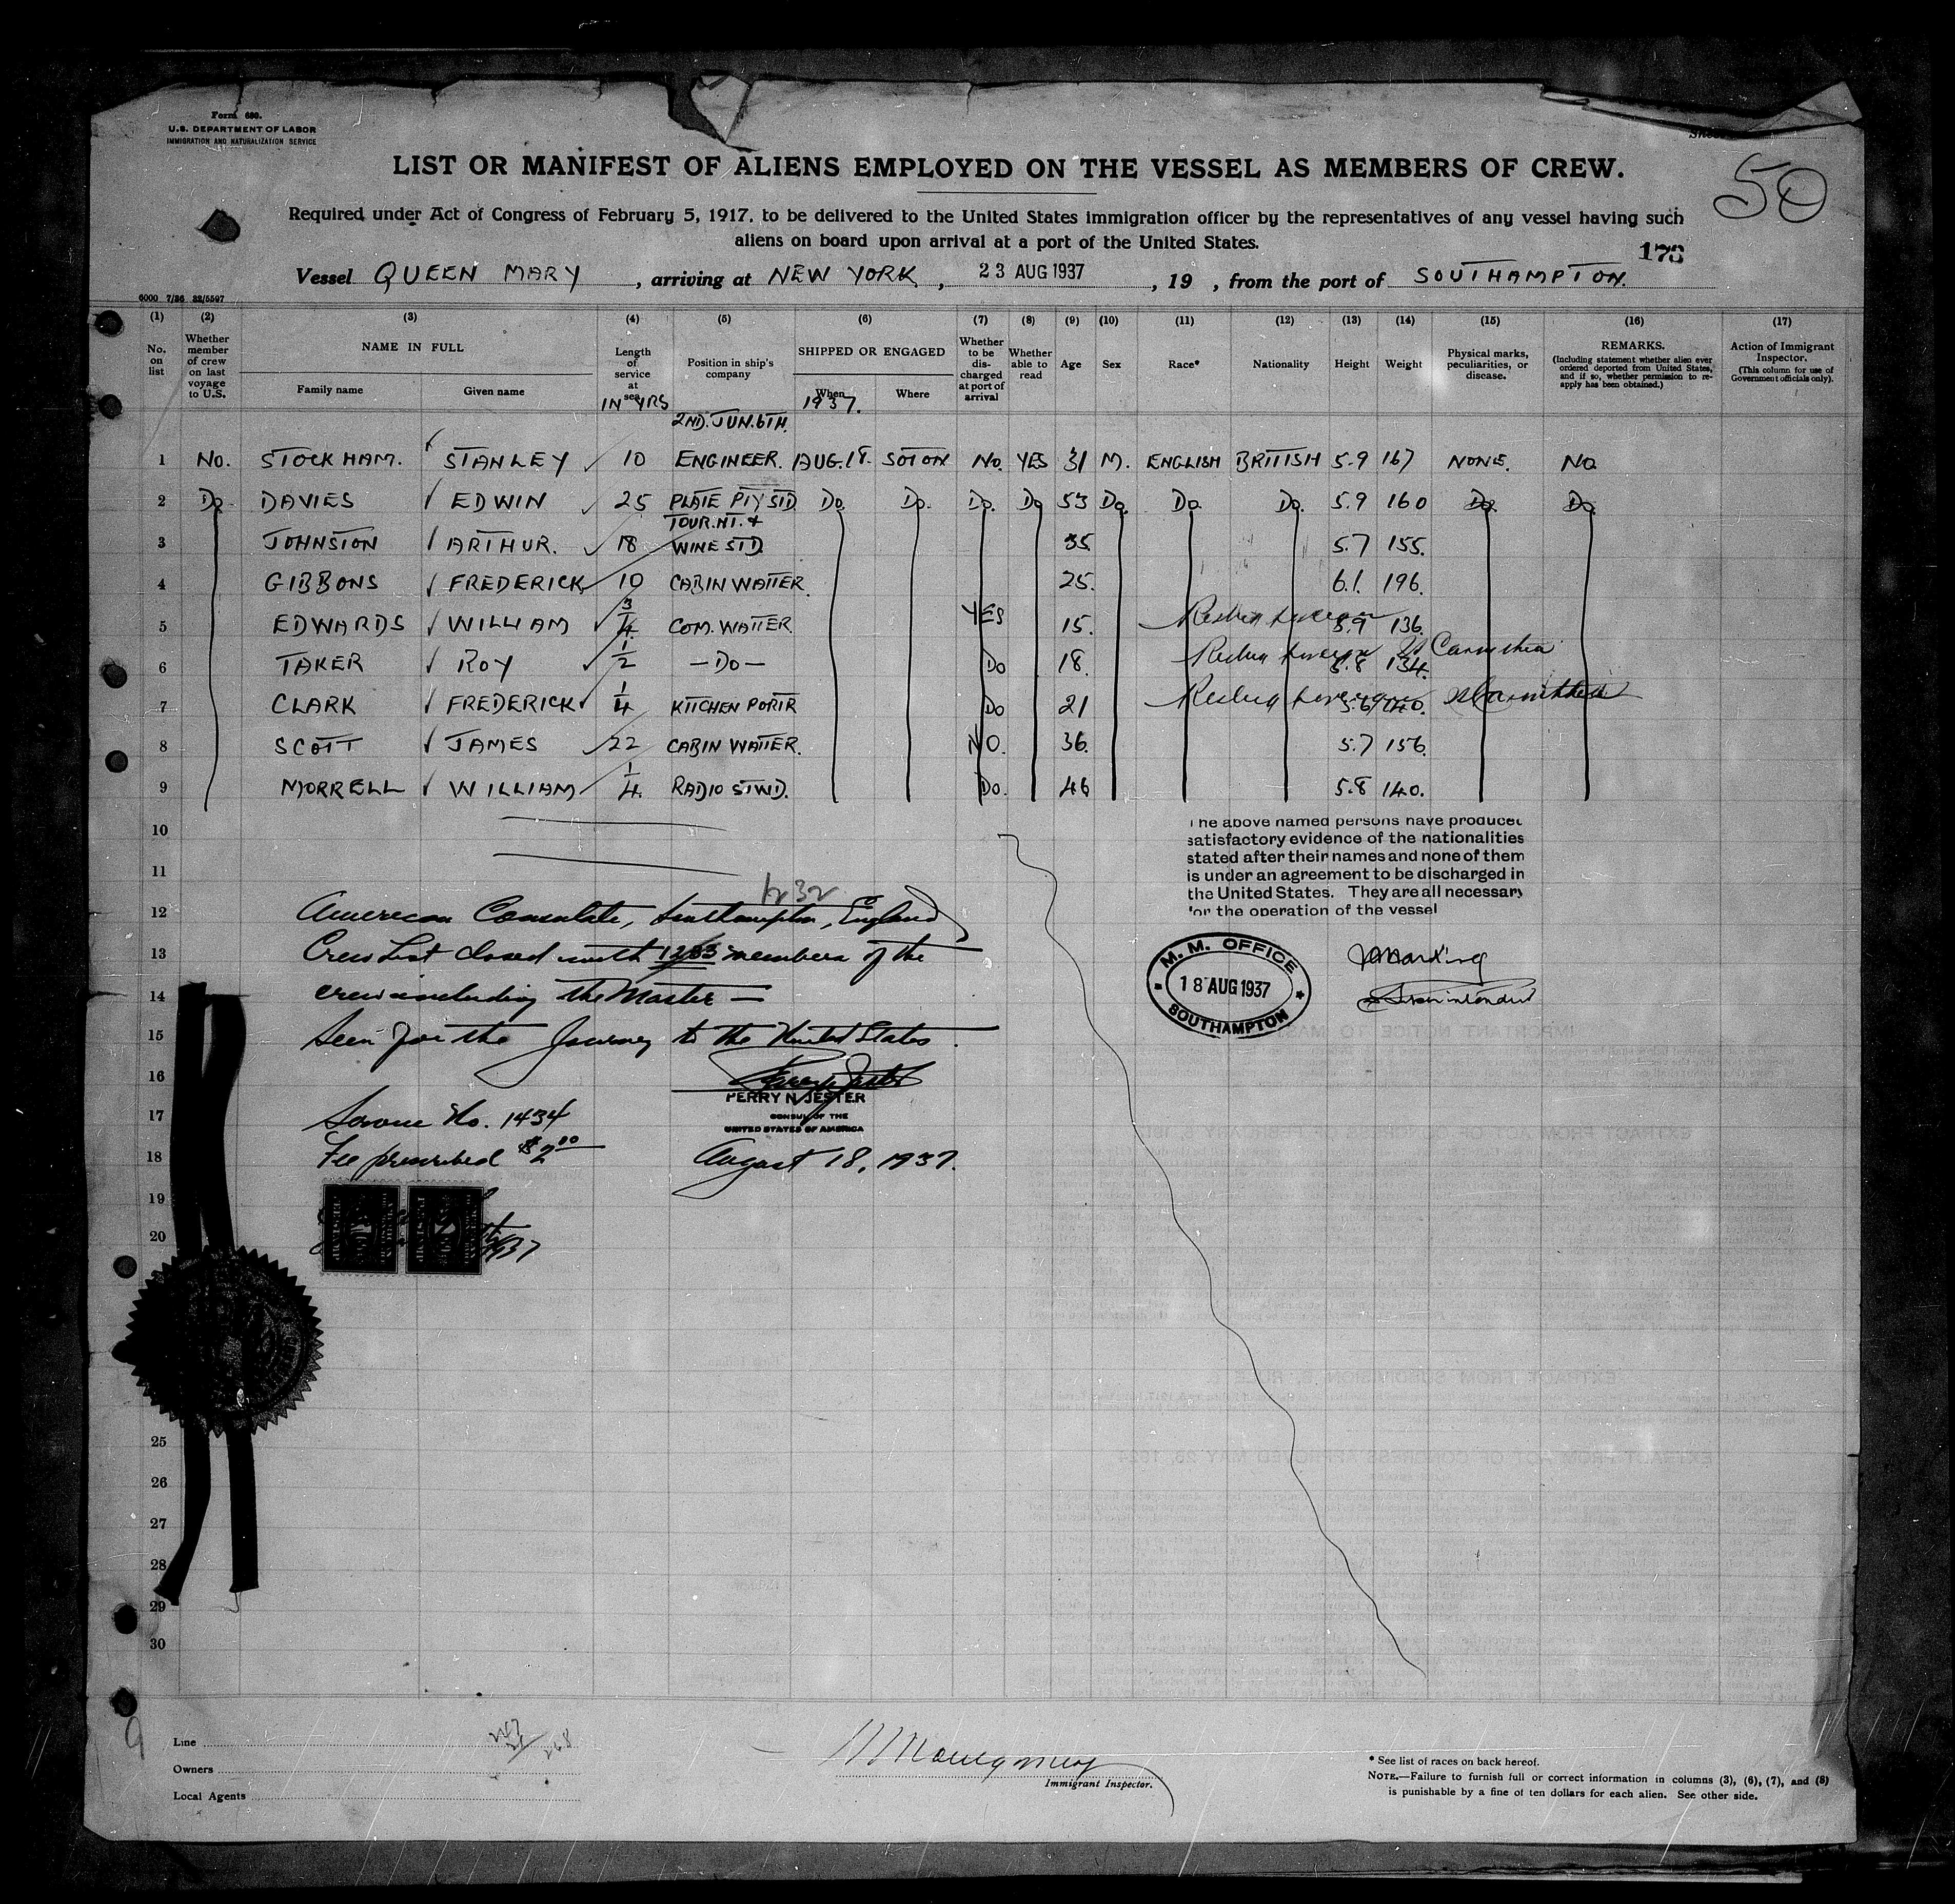 Form 680.
U.S. DEPARTMENT OF LABOR
IMMIGRATION AND NATURALIZATION SERVICE
LIST OR MANIFEST OF ALIENS EMPLOYED ON THE VESSEL AS MEMBERS OF CREW.
50
Required under Act of Congress of February 5, 1917, to be delivered to the United States immigration officer by the representatives of any vessel having such
aliens on board upon arrival at a port of the United States.
173
Vessel QUEEN MARY, arriving at NEW YORK, 23 AUG 1937, 19 , from the port of SOUTHAMPTON.
6000 7/36 32/5597
(1) (2) (3) (4) (5) (6) (7) (8) (9) (10) (11) (12) (13) (14) (15) (16) (17)
No. on list
Whether member of crew on last voyage to U.S.
NAME IN FULL
Family name Given name
Length of service at sea
IN YRS
Position in ship's company
SHIPPED OR ENGAGED
When Where
1937.
Whether to be discharged at port of arrival
Whether able to read
Age
Sex
Race*
Nationality
Height
Weight
Physical marks, peculiarities, or disease.
REMARKS.
(Including statement whether alien ever ordered deported from United States, and if so, whether permission to re-apply has been obtained.)
Action of Immigrant Inspector.
(This column for use of Government officials only).
2ND. JUN. 6TH.
1 No. STOCKHAM. STANLEY 10 ENGINEER. AUG.18. SOTON No. YES 31 M. ENGLISH BRITISH 5.9 167 NONE. NO.
2 Do DAVIES EDWIN 25 PLATE PTY STD Do. Do. Do. Do 53 Do. Do. Do. 5.9 160 Do. Do.
TOUR. NT. +
3 JOHNSTON ARTHUR. 18 WINE STD. 35 5.7 155.
4 GIBBONS FREDERICK 10 CABIN WAITER. 25. 6.1. 196.
5 EDWARDS WILLIAM 3/4 COM. WAITER. YES 15. 5.9 136.
6 TAKER ROY 1/2 —DO— Do 18. 5.8 134. Carinthia
7 CLARK FREDERICK 1/4 KITCHEN PORTR Do 21 5.6 140.
8 SCOTT JAMES 22 CABIN WAITER. NO. 36. 5.7 156.
9 MORRELL WILLIAM 1/4 RADIO STWD. Do. 46 5.8 140.
10
The above named persons have produced
satisfactory evidence of the nationalities
stated after their names and none of them
is under an agreement to be discharged in
the United States. They are all necessary
for the operation of the vessel
11
1232
12 American Consulate, Southampton, England
13 Crew List closed with 1233 members of the
14 crew including the Master —
15 Seen for the Journey to the United States.
M. M. OFFICE
18 AUG 1937
SOUTHAMPTON
16
PERRY N. JESTER
CONSUL OF THE
UNITED STATES OF AMERICA
17 Service No. 1434
18 Fee prescribed $2.00
August 18, 1937.
19
20
25
26
27
28
29
30
Line
Owners
Local Agents
Montgomery
Immigrant Inspector.
* See list of races on back hereof.
NOTE.—Failure to furnish full or correct information in columns (3), (6), (7), and (8)
is punishable by a fine of ten dollars for each alien. See other side.